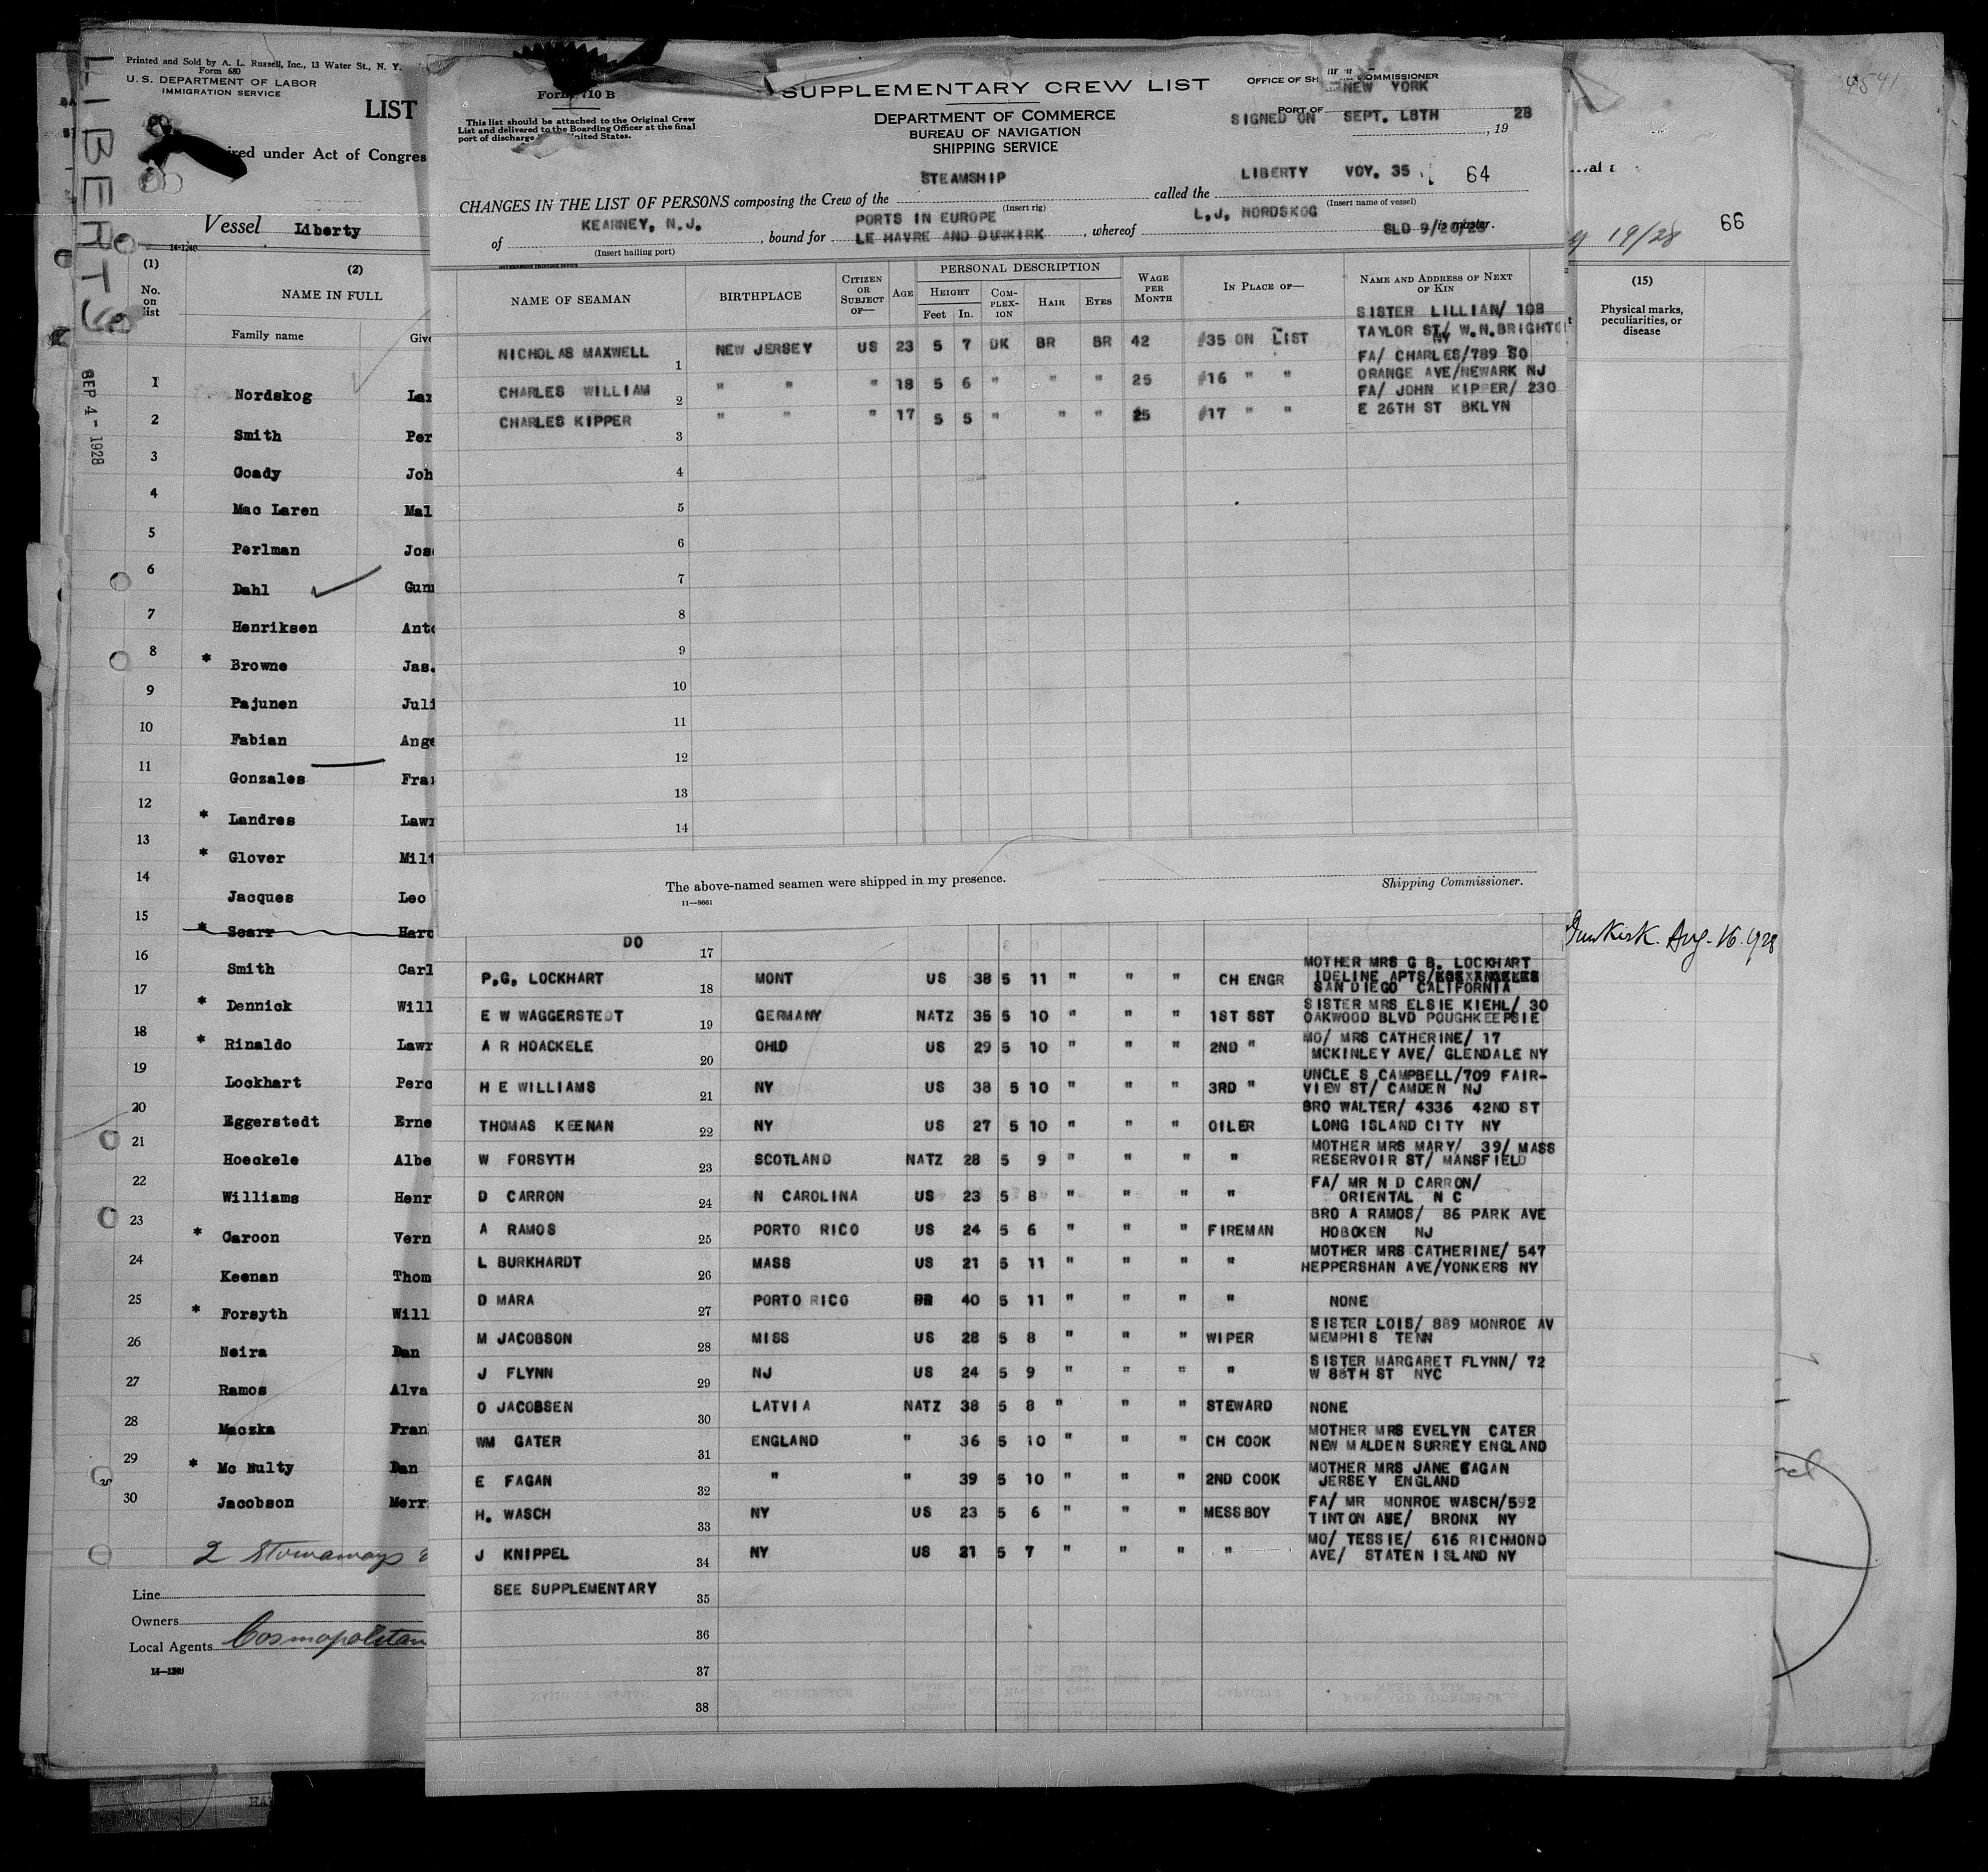 Printed and Sold by A. L. Russell, Inc., 13 Water St., N. Y.
Form 680
U. S. DEPARTMENT OF LABOR
IMMIGRATION SERVICE
LIST
ired under Act of Congres
LIBERTY
SEP 4 - 1928
Vessel Liberty
14-1240
(1) (2)
No. on list
NAME IN FULL
Family name Give
1 Nordskog Lar
2 Smith Per
3 Goady Joh
4 Mac Laren Mal
5 Perlman Jos
6 Dahl Gun
7 Henriksen Anto
8 * Browne Jas.
9 Pajunen Juli
10 Fabian Ange
11 Gonzales Fra
12 * Landres Lawr
13 * Glover Mil
14 Jacques Leo
15 * Scarr Haro
16 Smith Carl
17 * Dennick Will
18 * Rinaldo Lawr
19 Lockhart Perc
20 Eggerstedt Erne
21 Hoeckele Albe
22 Williams Henr
23 * Caroon Vern
24 Keenan Thom
25 * Forsyth Will
26 Neira Dan
27 Ramos Alva
28 Maczka Fran
29 * Mc Nulty Dan
30 Jacobson Merr
2 Stowaways
Line
Owners
Local Agents Cosmopolitan
14—1240
Form 710 B
This list should be attached to the Original Crew
List and delivered to the Boarding Officer at the final
port of discharge United States.
SUPPLEMENTARY CREW LIST
DEPARTMENT OF COMMERCE
BUREAU OF NAVIGATION
SHIPPING SERVICE
OFFICE OF SH COMMISSIONER
NEW YORK
PORT OF
SIGNED ON SEPT. L8TH , 19 28
STEAMSHIP LIBERTY VOY. 35 64
CHANGES IN THE LIST OF PERSONS composing the Crew of the called the
(Insert rig) (Insert name of vessel)
KEARNEY, N.J. PORTS IN EUROPE L.J. NORDSKOG
of , bound for LE HAVRE AND DUNKIRK , whereof SLD 9/20/28 is master.
(Insert hailing port)
GOVERNMENT PRINTING OFFICE
NAME OF SEAMAN BIRTHPLACE CITIZEN OR SUBJECT OF— AGE PERSONAL DESCRIPTION Height Feet In. COM-PLEX-ION HAIR EYES WAGE PER MONTH IN PLACE OF— NAME AND ADDRESS OF NEXT OF KIN
NICHOLAS MAXWELL 1 NEW JERSEY US 23 5 7 DK BR BR 42 #35 ON LIST SISTER LILLIAN/ 108 TAYLOR ST/ W.N.BRIGHTO NY
CHARLES WILLIAM 2 " " " 18 5 6 " " " 25 #16 " " FA/ CHARLES/789 SO ORANGE AVE/NEWARK NJ
CHARLES KIPPER 3 " " " 17 5 5 " " " 25 #17 " " FA/ JOHN KIPPER/ 230 E 26TH ST BKLYN
4
5
6
7
8
9
10
11
12
13
14
The above-named seamen were shipped in my presence.
Shipping Commissioner.
11—8661
DO 17
P.G. LOCKHART 18 MONT US 38 5 11 " " " CH ENGR MOTHER MRS G B. LOCKHART IDELINE APTS/ SAN DIEGO CALIFORNIA
E W WAGGERSTEDT 19 GERMANY NATZ 35 5 10 " " " 1ST SST SISTER MRS ELSIE KIEHL/ 30 OAKWOOD BLVD POUGHKEEPSIE
A R HOACKELE 20 OHIO US 29 5 10 " " " 2ND " MO/ MRS CATHERINE/ 17 MCKINLEY AVE/ GLENDALE NY
H E WILLIAMS 21 NY US 38 5 10 " " " 3RD " UNCLE S CAMPBELL/709 FAIR-VIEW ST/ CAMDEN NJ
THOMAS KEENAN 22 NY US 27 5 10 " " " OILER BRO WALTER/ 4336 42ND ST LONG ISLAND CITY NY
W FORSYTH 23 SCOTLAND NATZ 28 5 9 " " " " MOTHER MRS MARY/ 39/ MASS RESERVOIR ST/ MANSFIELD
D CARRON 24 N CAROLINA US 23 5 8 " " " " FA/ MR N D CARRON/ ORIENTAL N C
A RAMOS 25 PORTO RICO US 24 5 6 " " " FIREMAN BRO A RAMOS/ 86 PARK AVE HOBOKEN NJ
L BURKHARDT 26 MASS US 21 5 11 " " " " MOTHER MRS CATHERINE/ 547 HEPPERSHAN AVE/YONKERS NY
D MARA 27 PORTO RICO BR 40 5 11 " " " " NONE
M JACOBSON 28 MISS US 28 5 8 " " " WIPER SISTER LOIS/ 889 MONROE AV MEMPHIS TENN
J FLYNN 29 NJ US 24 5 9 " " " " SISTER MARGARET FLYNN/ 72 W 88TH ST NYC
O JACOBSEN 30 LATVIA NATZ 38 5 8 " " " STEWARD NONE
WM GATER 31 ENGLAND " 36 5 10 " " " CH COOK MOTHER MRS EVELYN CATER NEW MALDEN SURREY ENGLAND
E FAGAN 32 " " 39 5 10 " " " 2ND COOK MOTHER MRS JANE EAGAN JERSEY ENGLAND
H. WASCH 33 NY US 23 5 6 " " " MESSBOY FA/ MR MONROE WASCH/592 TINTON AVE/ BRONX NY
J KNIPPEL 34 NY US 21 5 7 " " " " MO/ TESSIE/ 616 RICHMOND AVE/ STATEN ISLAND NY
SEE SUPPLEMENTARY 35
36
37
38
19/28 66
(15)
Physical marks, peculiarities, or disease
Dunkirk. Aug. 16. 1928